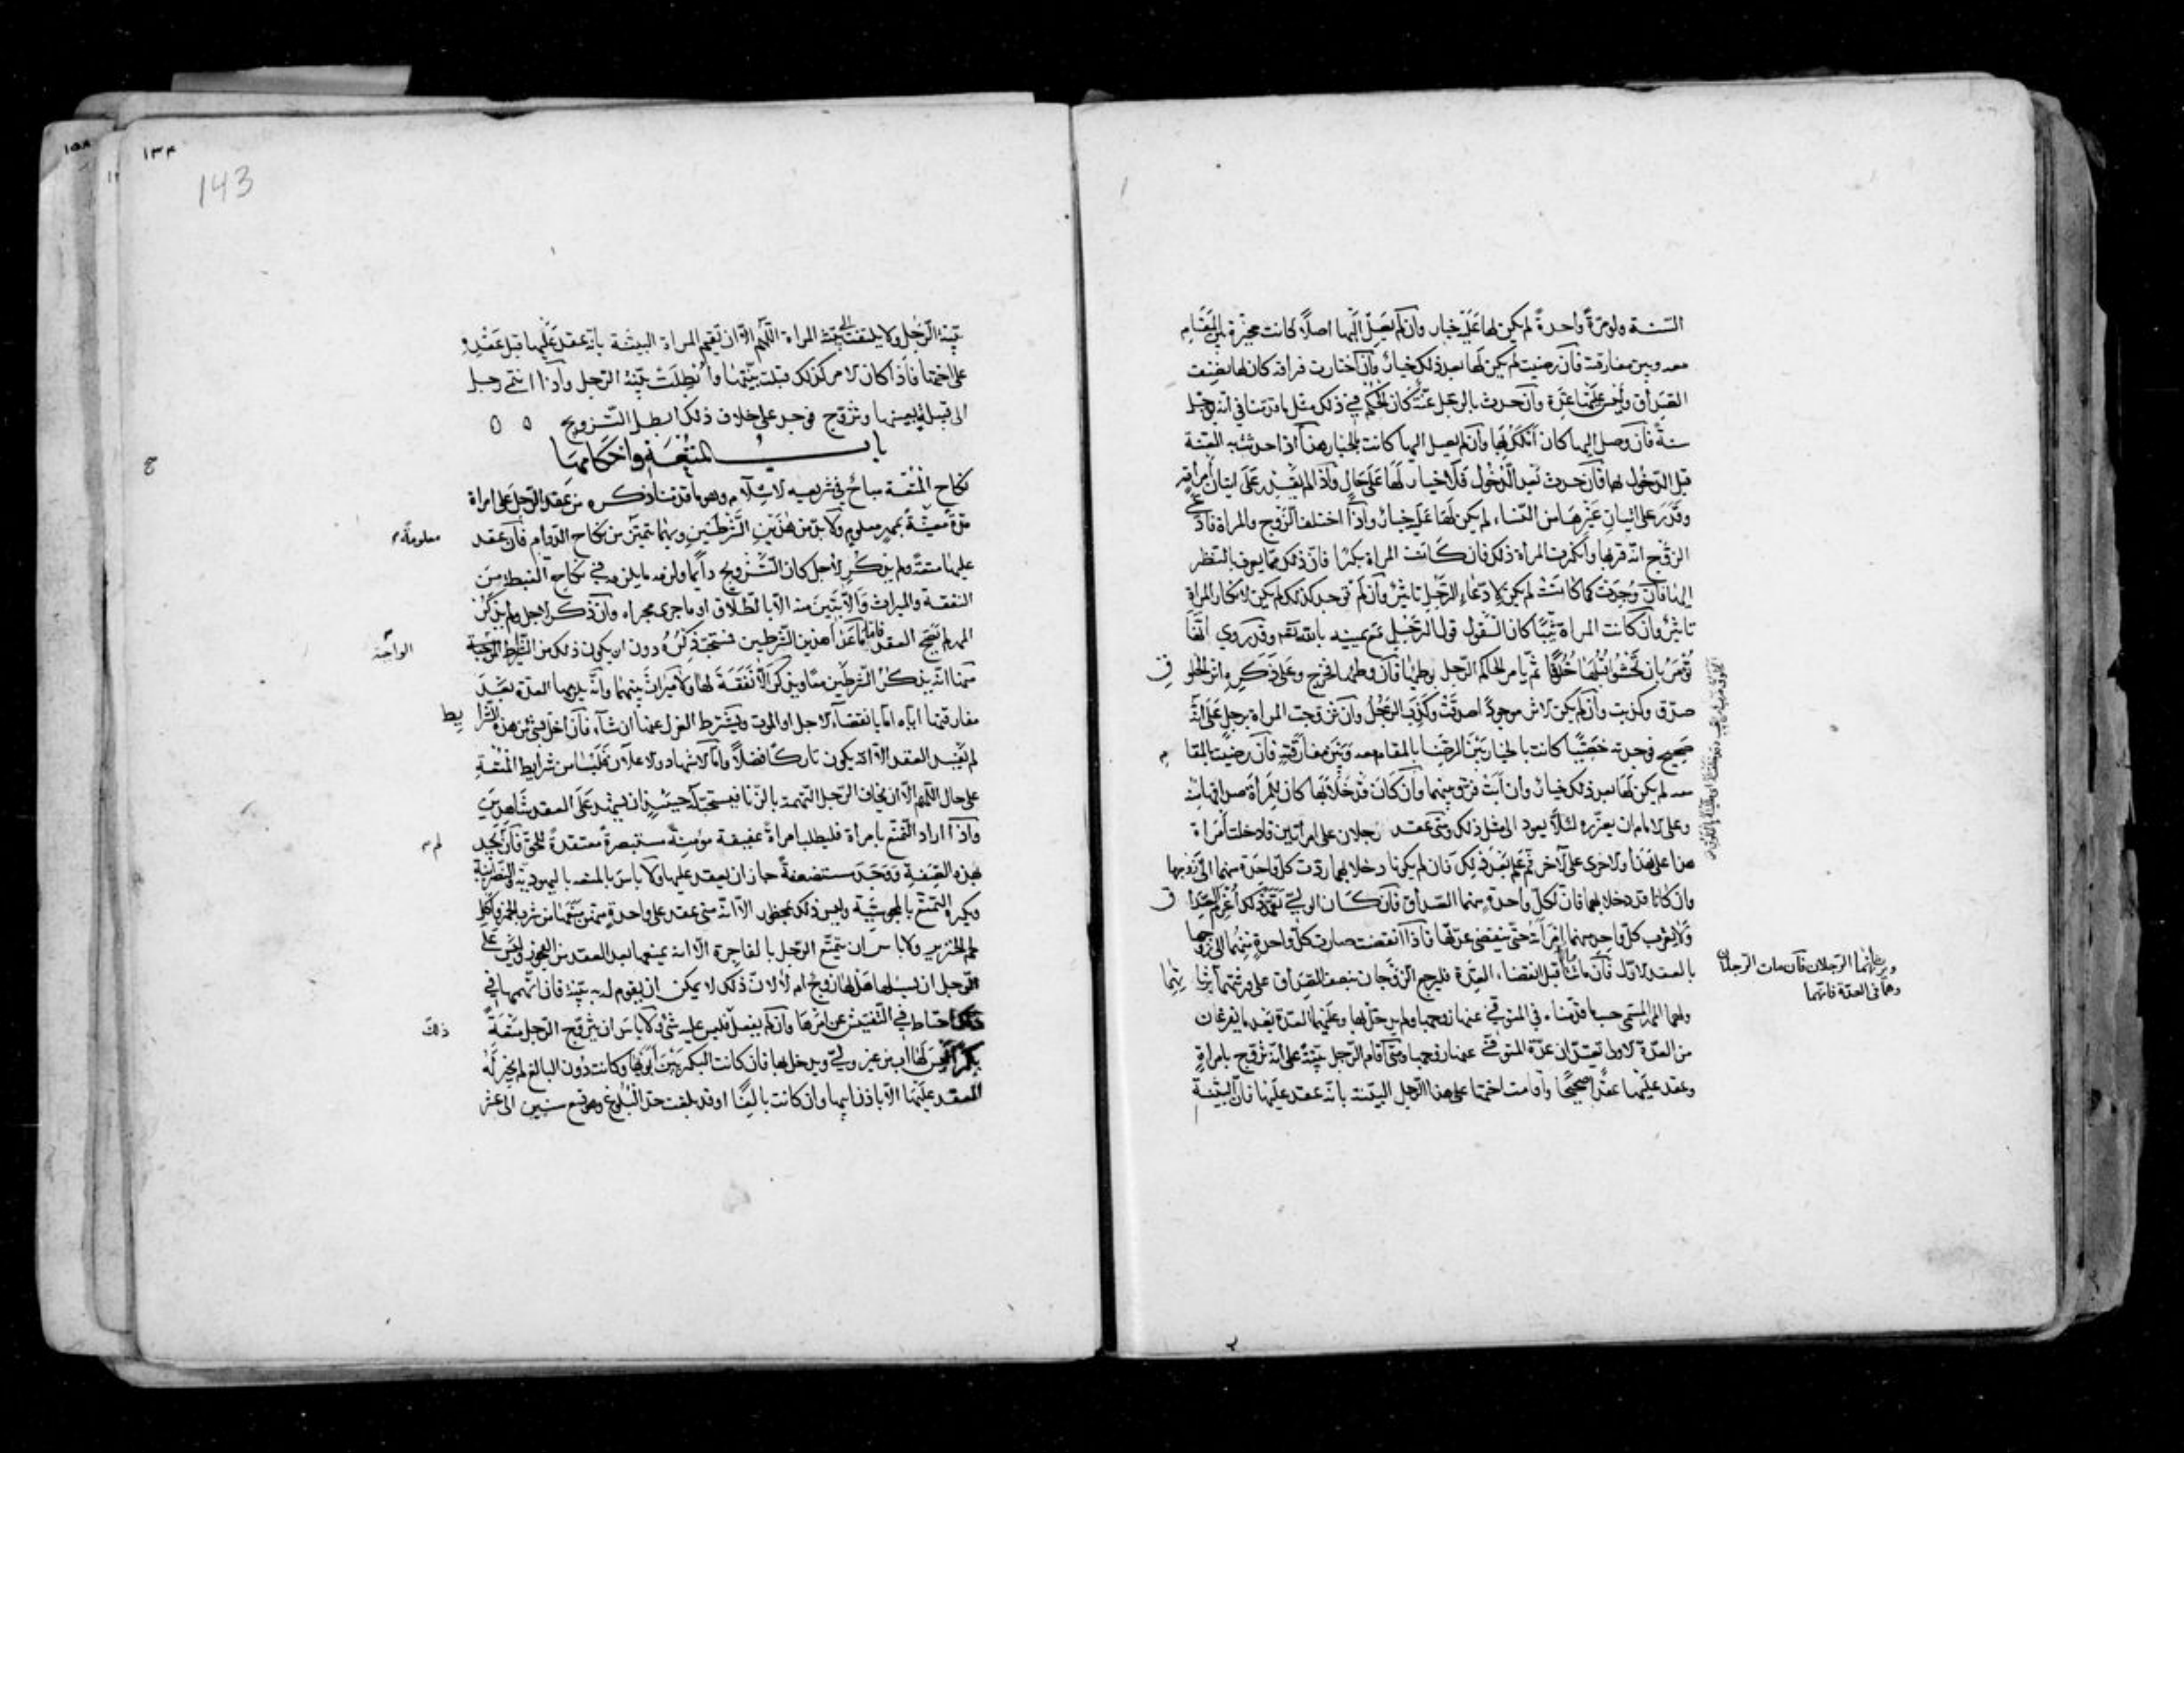 السّنة ولو مرّةً واحدةً لم يكن لها عَلَيْهِ خيار وان لم يصل إليها اصلاً كانت مخيّرة بين المقام
معه وبين مفارقته فان رضيت لم يكن لها بعد ذلك خيار وان اختارت فراقه كان لها نصف
الصداق وليس عليها عدّة وان حدث بالرجل عنّة كان الحكم في ذلك مثل ما قدّمناه في انه يؤجل
سنةً فان وصل إليها كان أملك بها وان لم يصل اليها كانت بالخيار هذا اذا حدث به العنّة
قبل الدّخول بها فان حدث بعد الدّخول فلا خيار لها على حال واذا لم يقدر على اتيان امراته
وقدر على اتيان غيرها من النّساء لم يكن لها عليه خيار واذا اختلف الزوج والمراة فادّعى
الزّوج انّه قربها وانكرت المراة ذلك فان كانت المراة بكرًا فانّ ذلك ممّا يعرف بالنّظر
اليها فان وجدت كما كانت لم يكن لادّعاء الرّجل تاثيرٌ وان لم توجد كذلك لم يكن لانكار المراة
تاثير وان كانت المراة ثيّبًا كان القول قول الرّجل مع يمينه بالله تع وقد روي انّها
تؤمر بان تحشو قبلها خلوقًا ثمّ يامر الحاكم الرّجل بوطيها فان وطيها فخرج وعلى ذكره اثر الخلوق
صدّق وكذبت وان لم يكن الاثر موجودًا صدّقت وكذّب الرّجل وان تزوّجت المراة برجل على انّه
صحيح فوجدته خصيًّا كانت بالخيار بين الرضا بالمقام معه وبين مفارقته فان رضيت بالمقام
معه لم يكن لها بعد ذلك خيار وان ابت فرّق بينهما وان كان قد خلا بها كان للمراة صداقها منه
وعلى الامام ان يعزّره لئلّا يعود الى مثل ذلك ومتى عقد رجلان على امراتين فادخلت امراة
هذا على هذا والاخرى على الآخر ثم علم بعد ذلك فان لم يكونا دخلا بهما ردّت كلّ واحدة منهما الى زوجها
وان كانا قد دخلا بهما فانّ لكلّ واحدة منهما الصّداق فان كان الوليّ تعمّد ذلك اغرم الصّداق
ولا يقرب كلّ واحد منهما امراته حتّى تنقضي عدّتها فاذا انقضت صارت كلّ واحدة منهما الى زوجها
بالعقد الاوّل فان ماتتا قبل انقضاء العدّة فليرجع الزّوجان بنصف الصّداق على ورثتهما
ويرثانهما الرّجلان فان مات الرّجلان
وهما في العدّة فانّهما
يرثانهما
ولهما المهر المسمّى حسب ما قدّمناه في المتوفّى عنها زوجها ولم يدخل بها وعليهما العدّة بعد ما يفرغان
من العدّة الاولى تعتدّان عدّة المتوفّى عنها زوجها ومتى اقام الرّجل بيّنةً على انّه تزوّج بامراةٍ
وعقد عليها عقدًا صحيحًا واقامت اختها على هذا الرّجل البيّنة بانّه عقد عليها فانّ البيّنة
١٣٤
143
بيّنة الرّجل ولا يلتفت الى بيّنة المراة اللّهم الّا ان تقيم المراة البيّنة بانّه عقد عليها قبل عقده
على اختها فاذا كان الامر كذلك قبلت بيّنتها وابطلت بيّنة الرّجل واذا انتمى رجل
الى قبيلة بعينها وتزوّج فوجد على خلاف ذلك ابطل التّزويج
باب المتعة واحكامها
نكاح المتعة مباح في شريعة الاسلام وهو ما قدّمنا ذكره من عقد الرّجل على امراة
مدّةً معيّنةً بمهرٍ معلومٍ ولا بدّ من هذين الشّرطين وبهما يتميّز من نكاح الدّوام فان عقد
معلومةً
عليها متعةً ولم يذكر الاجل كان التّزويج دائمًا ولزمه ما يلزمه في نكاح الغبطة من
النفقة والميراث والّا تبين منه الّا بالطّلاق او ما جرى مجراه وان ذكر الاجل ولم يذكر
المهر لم يصحّ العقد فامّا ما عدا هذين الشّرطين فمستحبّ ذكره دون ان يكون ذلك من الشّرائط الموجبة
الواجبة
فمنها انّه يذكر الشّرطين معًا ويذكر الّا نفقة لها ولا ميراث بينهما وانّه يلزمها العدّة بعد
مفارقتها ايّاه امّا بانقضاء الاجل او الموت ويشترط العزل عنها ان شاء فان اخلّ بشي من هذه الشّرايط
لم يفسد العقد الّا انّه يكون تاركًا فضلاً وامّا الاشهاد والاعلان فليسا من شرايط المتعة
على حال اللّهم الّا ان يخاف الرّجل التّهمة بالزّنا فيستحبّ له حينئذٍ ان يشهد على العقد شاهدين
واذا اراد التمتّع بامراة فليطلب امراةً عفيفة مؤمنةً مستبصرةً معتقدةً للحقّ فان لم يجد
لم
بهذه الصّفة ووجد مستضعفةً جاز ان يعقد عليها ولا باس بالمتعة باليهوديّة والنّصرانيّة
ويكره التمتّع بالمجوسيّة وليس ذلك بمحظور الّا انّه متى عقد على واحدةٍ منهنّ منعها من شرب الخمر واكل
لحم الخنزير ولا باس ان يتمتّع الرّجل بالفاجرة الّا انّه يمنعها بعد العقد من الفجور وليس على
الرّجل ان يسئلها هل لها زوج ام لا لانّ ذلك لا يمكن ان يقوم له به بيّنة فان اتّهمها في
ذلك احتاط في التّفتيش عن امرها وان لم يفعل فليس عليه شيٌ ولا باس ان يتزوّج الرّجل متعةً
ذلك
بكرًا ليس لها اب من غير وليّ ويدخل بها فان كانت البكر بين ابويها وكانت دون البالغ لم يجز له
العقد عليها الّا باذن ابيها وان كانت بالغًا وقد بلغت حدّ البلوغ وهو تسع سنين الى عشر